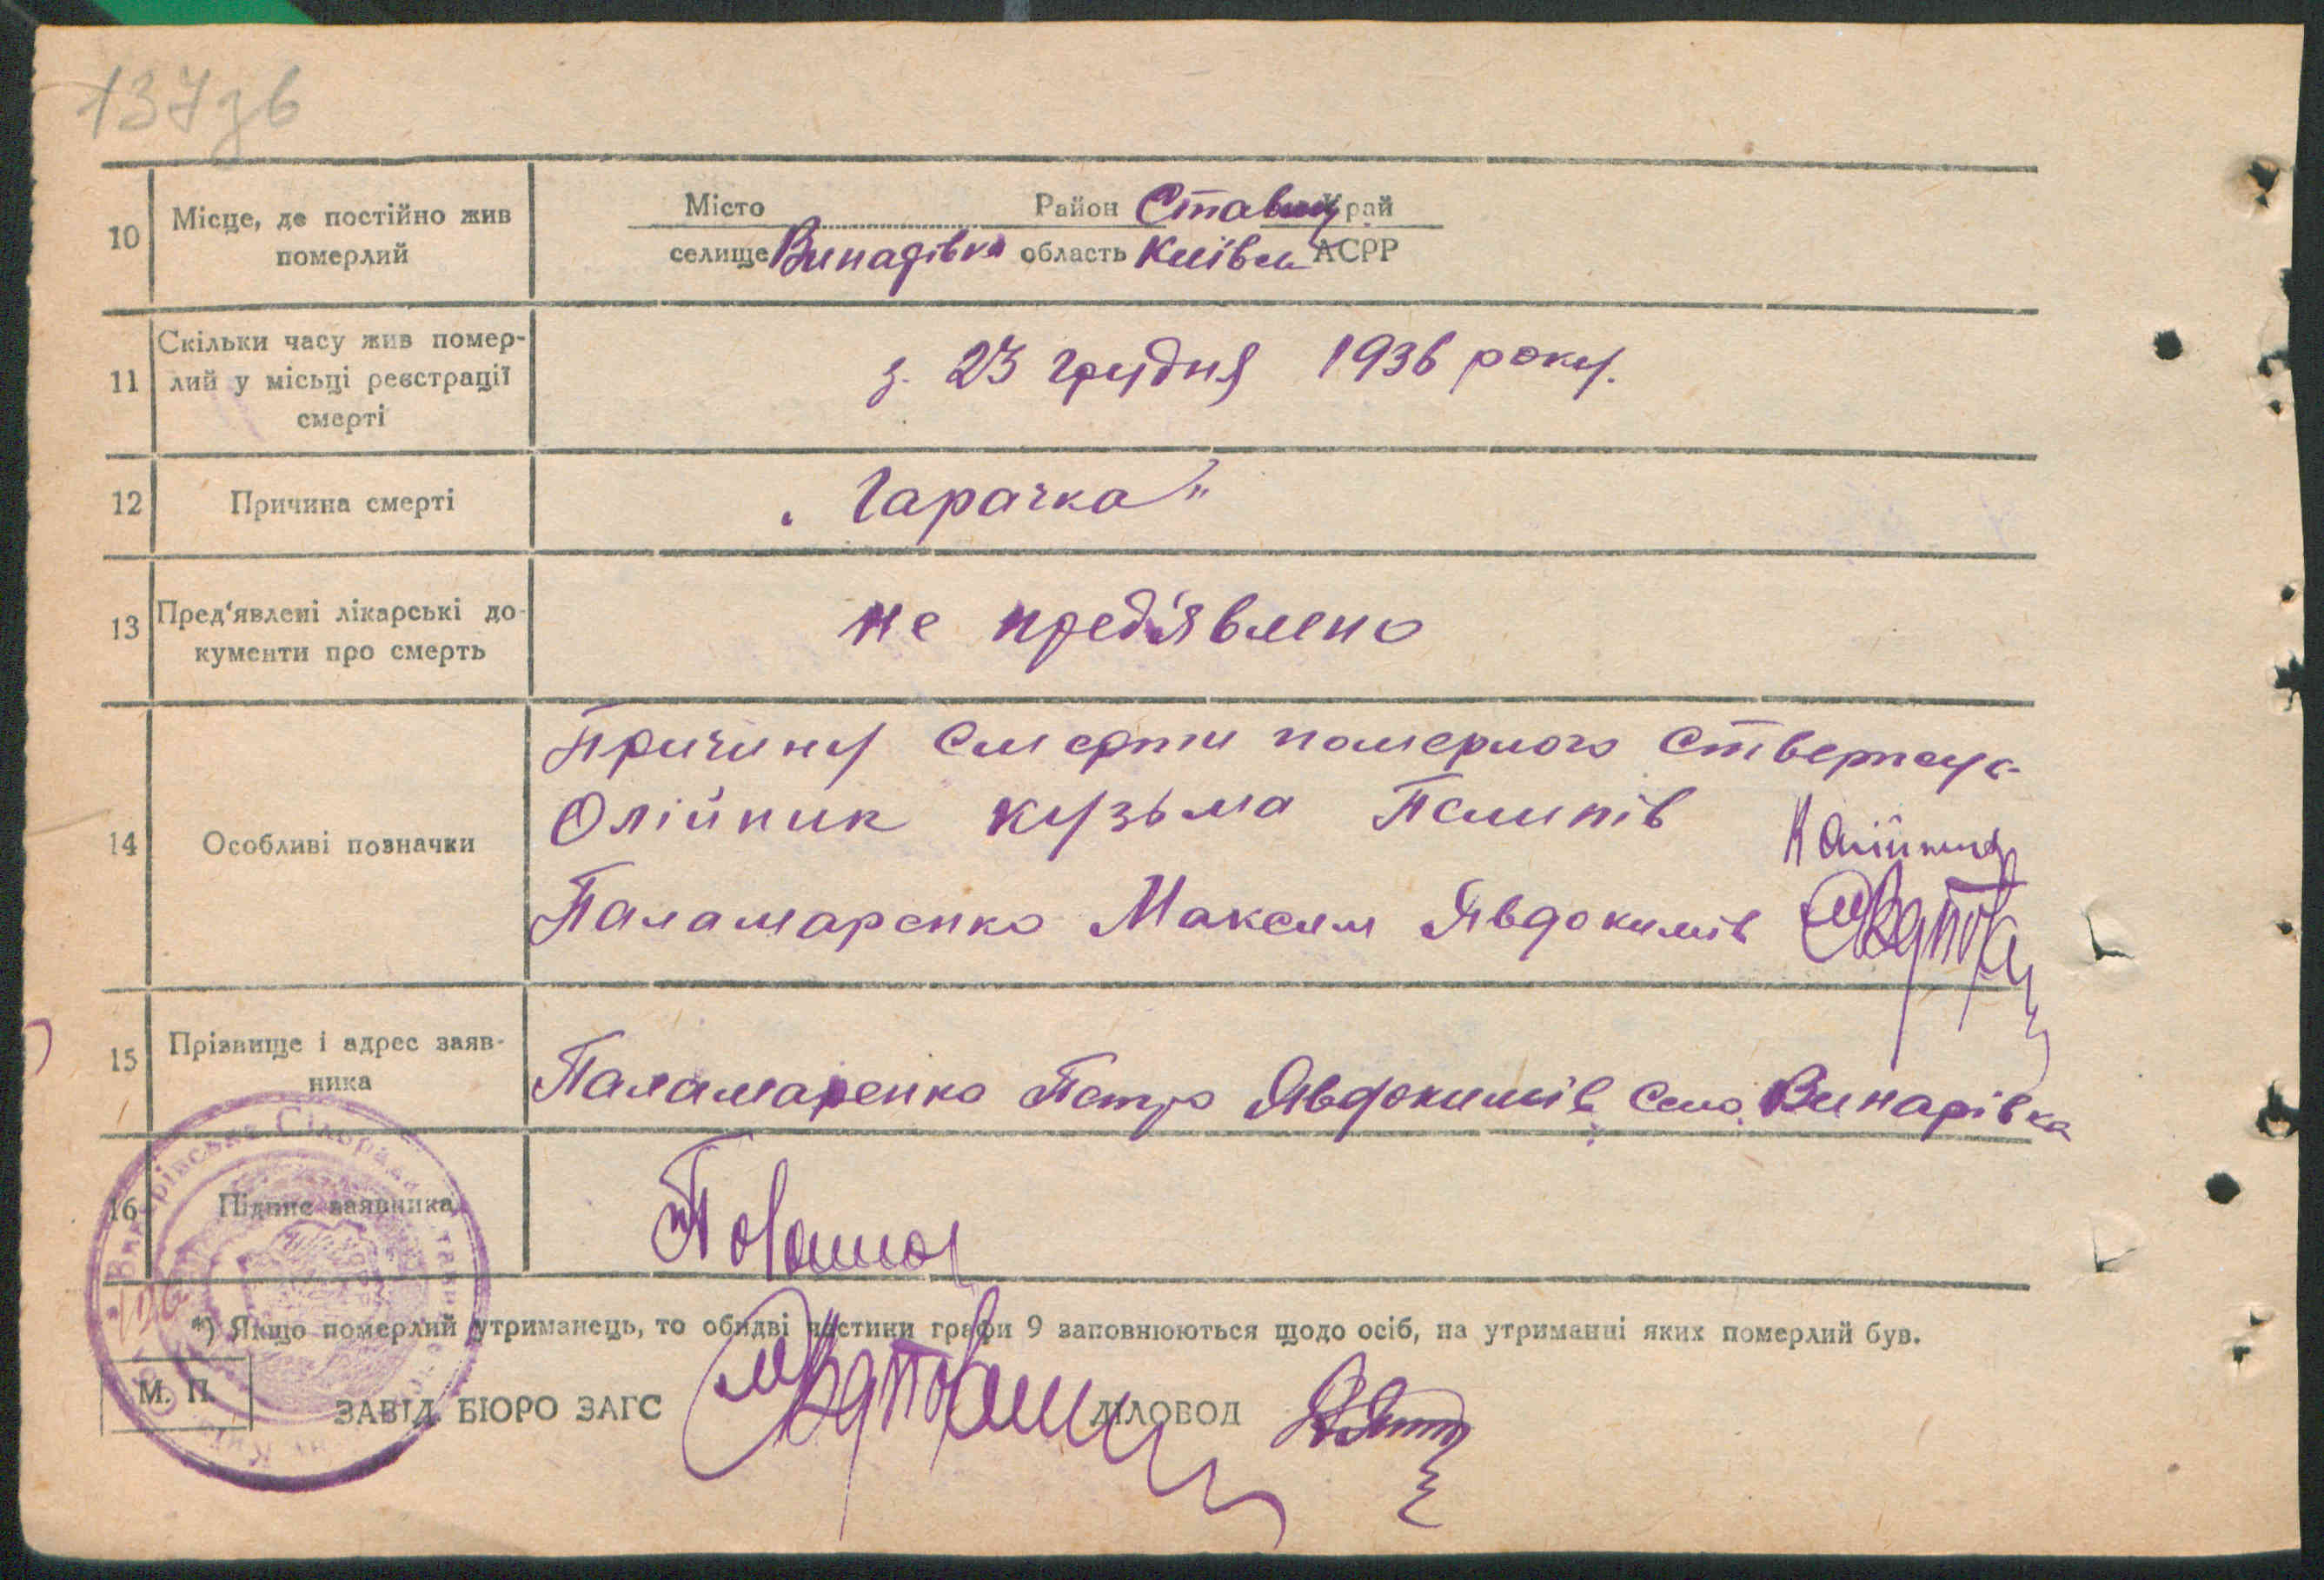 137зв
10 Місце, де постійно жив померлий
Місто Район Ставищ Край
селище Винарівка область Київсь АСРР
11 Скільки часу жив помер-
лий у місьці реєстрації
смерті
з 23 грудня 1936 року.
12 Причина смерті
„Гарачка"
13 Пред'явлені лікарські до-
кументи про смерть
не пред'явлено
14 Особливі позначки
Причину смерти померлого ствержує
Олійник Кузьма
Паламаренко Максим Явдокимів
15 Прізвище і адрес заяв-
ника
Паламаренко Петро Явдокимів село Винарівка
16 Підпис заявника
*) Якщо померлий утриманець, то обидві частини графи 9 заповнюються щодо осіб, на утриманні яких померлий був.
М. П.
ЗАВІД. БЮРО ЗАГС ДІЛОВОД